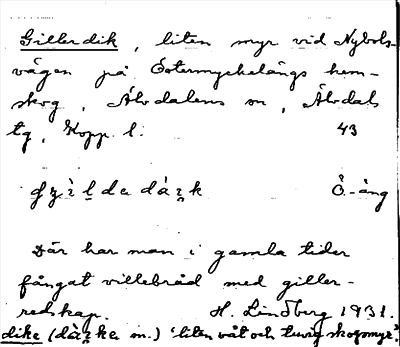 Gillerdik, liten myr vid Nybols-
vägen på Östermyckelängs hem-
skog, Älvdalens sn, Älvdals
tg, Kopp. l. 43
Ö.-äng
Där har man i gamla tider
fångat villebråd med giller-
redskap. H. Lindberg 1931.
dike m.) 'liten våt och tuvig skogsmyr'